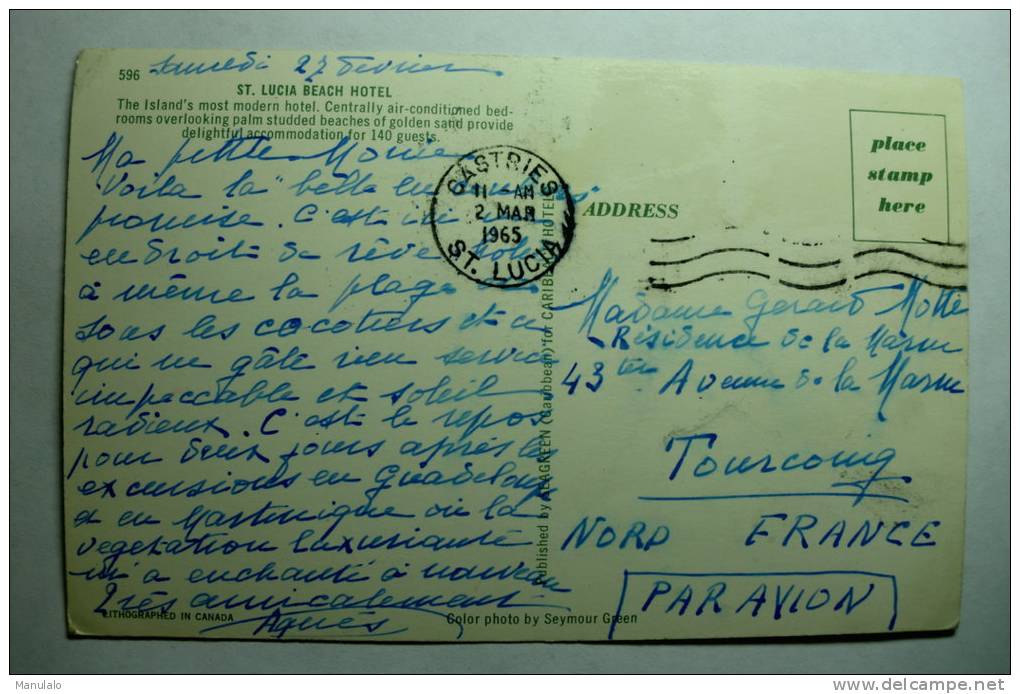 596 samedi 27 février
ST. LUCIA BEACH HOTEL
The Island's most modern hotel. Centrally air-conditioned bed-
rooms overlooking palm studded beaches of golden sand provide
delightful accommodation for 140 guests.
Ma petite
Voila la "belle
promise. C'est
endroit de rêve
à même la plage
sous les cocotiers et
qui ne gâte rien service
impeccable et soleil
radieux. C'est le repos
pour deux jours après les
excursions en Guadeloupe
et en Martinique où la
vegetation luxuriante
m'a enchanté à nouveau
Très amicalement
Agnès
LITHOGRAPHED IN CANADA
Color photo by Seymour Green
Published by SEAGREEN (Caribbean) for CARIBBEAN HOTEL
CASTRIES
11-AM
2 MAR
1965
ST. LUCIA
place
stamp
here
ADDRESS
Madame Gerard Motte
Résidence de la Marne
43 ter Avenue de la Marne
Tourcoing
NORD FRANCE
PAR AVION
Manulalo
delcampe.net